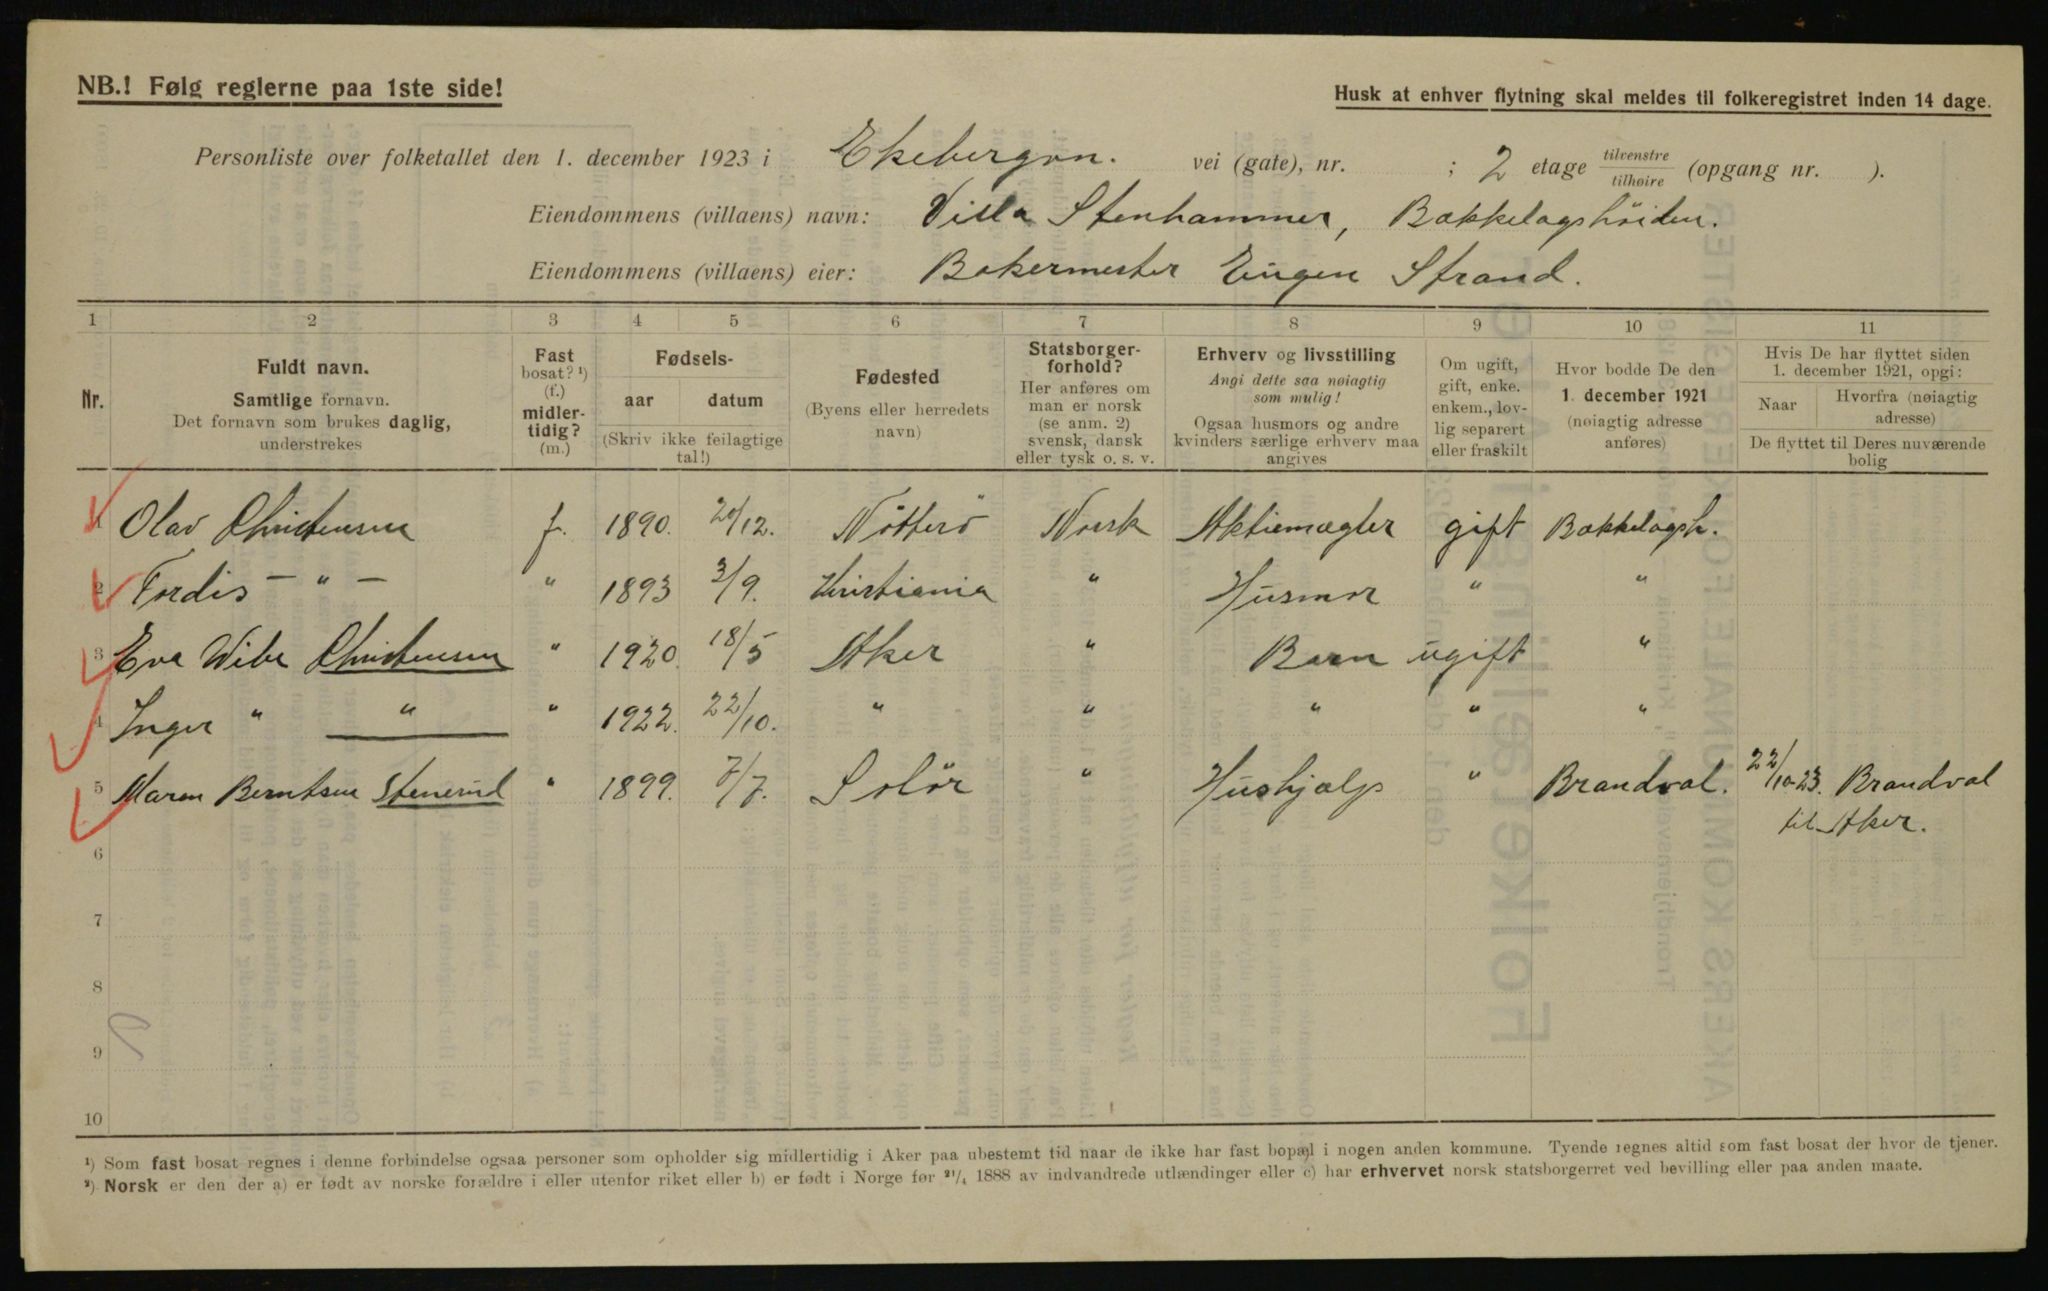 NB.! Følg reglerne paa 1ste side!
Husk at enhver flytning skal meldes til folkeregistret inden 14 dage.
Personliste over folketallet den 1. december 1923 i Ekebergvn. vei (gate), nr. ; 2 etage tilvenstre/tilhøire (opgang nr. ).
Eiendommens (villaens) navn: Villa Stenhammer, Bækkelagshöiden.
Eiendommens (villaens) eier: Bakermester Eugen Strand.
1 2 3 4 5 6 7 8 9 10 11
Nr.
Fuldt navn.
Samtlige fornavn.
Det fornavn som brukes daglig,
understrekes
Fast
bosat? ¹)
(f.)
midler-
tidig?
(m.)
Fødsels-
aar datum
(Skriv ikke feilagtige
tal!)
Fødested
(Byens eller herredets
navn)
Statsborger-
forhold?
Her anføres om
man er norsk
(se anm. 2)
svensk, dansk
eller tysk o. s. v.
Erhverv og livsstilling
Angi dette saa nøiagtig
som mulig!
Ogsaa husmors og andre
kvinders særlige erhverv maa
angives
Om ugift,
gift, enke.
enkem., lov-
lig separert
eller fraskilt
Hvor bodde De den
1. december 1921
(nøiagtig adresse
anføres)
Hvis De har flyttet siden
1. december 1921, opgi:
Naar
Hvorfra (nøiagtig
adresse)
De flyttet til Deres nuværende
bolig
1 Olav Christensen f. 1890. 20/12. Nötterö Norsk Aktiemægler gift Bækkelagsh.
2 Tordis — " — " 1893 3/9. Kristiania " Husmor " "
3 Eva Wibe Christensen " 1920. 18/5 Aker " Barn ugift "
4 Inger " " " 1922. 22/10. " " " " "
5 Maren Berntsen Stenerud " 1899. 7/7. Solör " Hushjælp " Brandval. 22/10-23. Brandval
til Aker.
6
7
8
9
10
¹) Som fast bosat regnes i denne forbindelse ogsaa personer som opholder sig midlertidig i Aker paa ubestemt tid naar de ikke har fast bopæl i nogen anden kommune. Tyende regnes altid som fast bosat der hvor de tjener.
²) Norsk er den der a) er født av norske forældre i eller utenfor riket eller b) er født i Norge før ²¹/₄ 1888 av indvandrede utlændinger eller c) har erhvervet norsk statsborgerret ved bevilling eller paa anden maate.